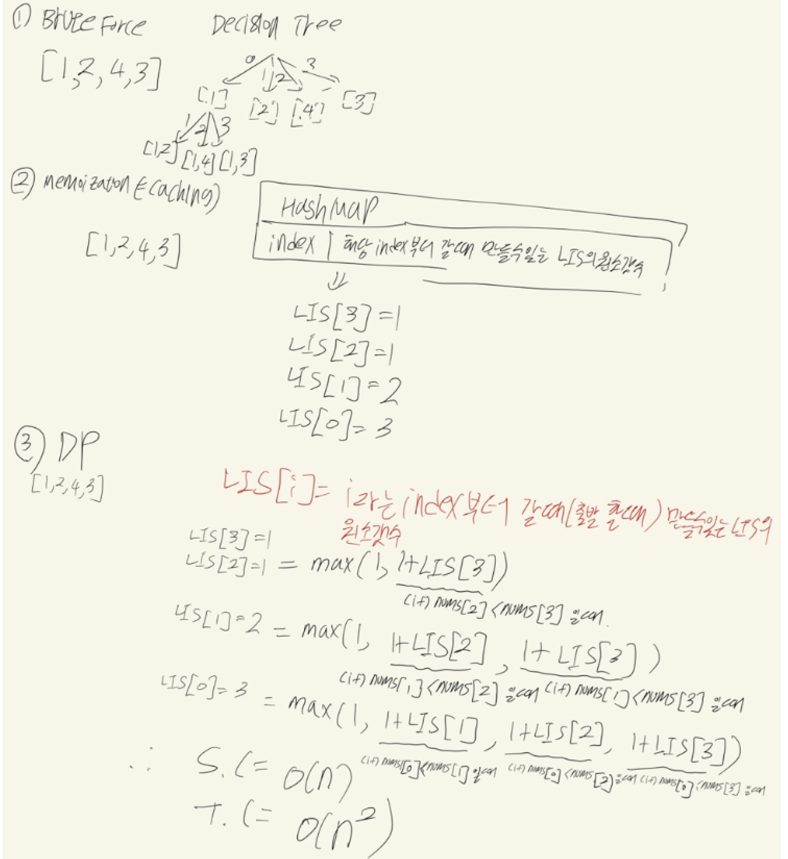 ① Brute Force Decision Tree
[1,2,4,3]
0 1 2 3
[1] [2] [4] [3]
1 2 3
[1,2] [1,4] [1,3]
② memoization (caching)
[1,2,4,3]
HashMap
index | 해당 index부터 갈때 만들수있는 LIS의 원소갯수
⇓
LIS[3]=1
LIS[2]=1
LIS[1]=2
LIS[0]=3
③ DP
[1,2,4,3]
LIS[i]= i라는 index부터 갈때(출발 할때) 만들수있는 LIS의
원소갯수
LIS[3]=1
LIS[2]=1 = max(1, 1+LIS[3])
(if) nums[2]<nums[3] 일때
LIS[1]=2 = max(1, 1+LIS[2], 1+LIS[3])
(if) nums[1]<nums[2] 일때 (if) nums[1]<nums[3] 일때
LIS[0]=3 = max(1, 1+LIS[1], 1+LIS[2], 1+LIS[3])
(if) nums[0]<nums[1] 일때 (if) nums[0]<nums[2] 일때 (if) nums[0]<nums[3] 일때
∴ S.C= O(n)
T.C= O(n²)